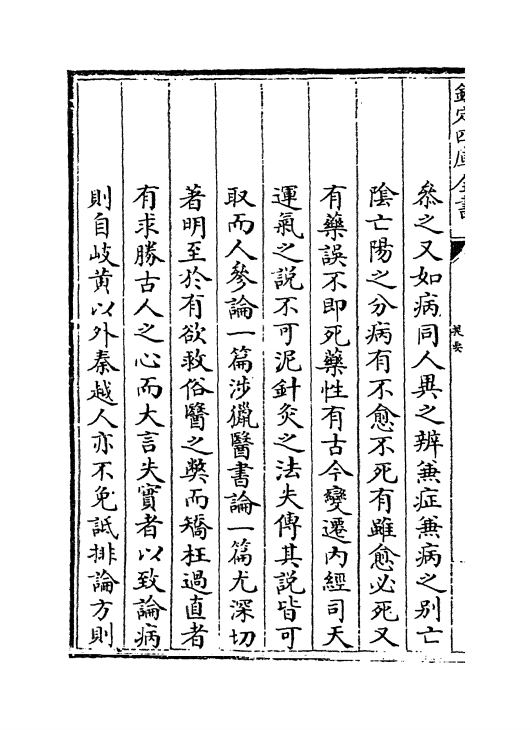 欽定四庫全書
提要
叅之又如病同人異之辨兼症兼病之别亡
陰亡陽之分病有不愈不死有雖愈必死又
有藥誤不即死藥性有古今變遷内經司天
運氣之說不可泥針灸之法失傳其說皆可
取而人參論一篇涉獵醫書論一篇尤深切
著明至於有欲救俗醫之獘而矯枉過直者
有求勝古人之心而大言失實者以致論病
則自岐黄以外秦越人亦不免詆排論方則